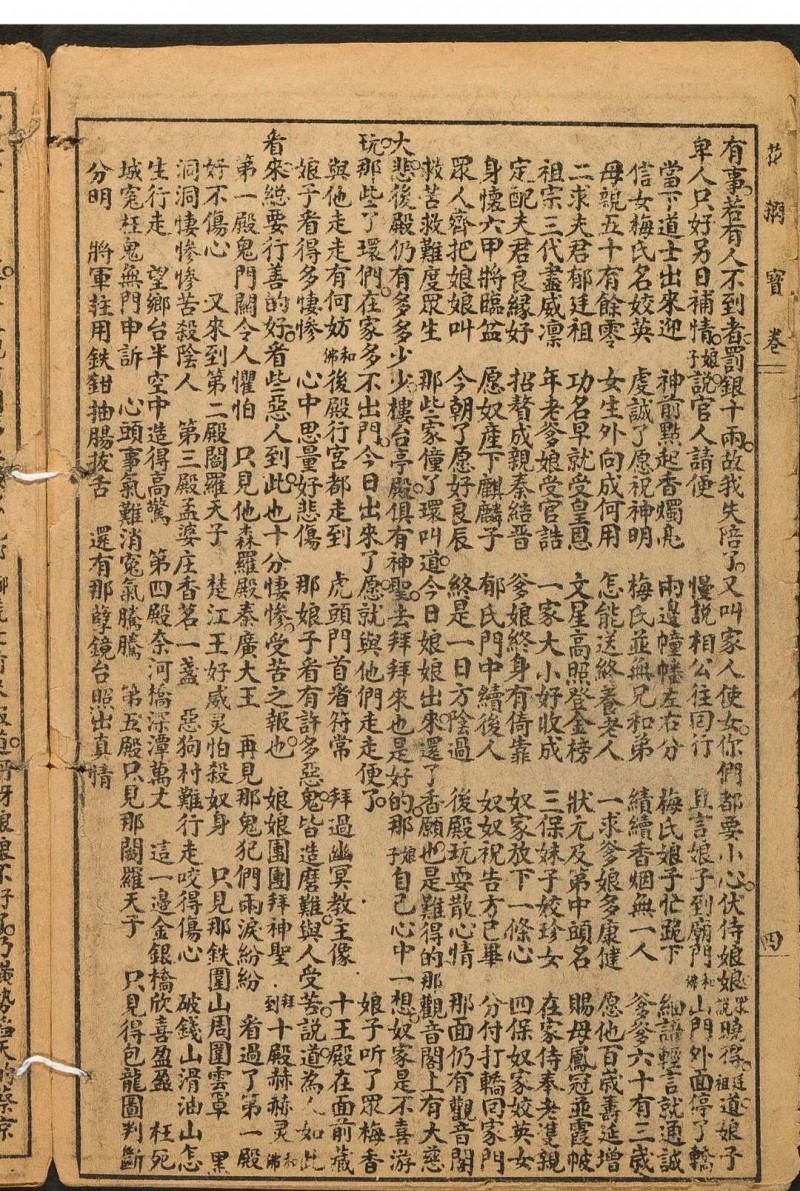 花名寶卷
四
有事。若有人不到者。罰銀十兩。故我失陪了。又叫家人使女。你們都要小心。伏侍娘娘。衆說曉得。廷祖道娘子
卑人只好另日補情。娘子說官人請便　慢說相公往回行　且言娘子到廟門和佛山門外面停了轎
當下道士出來迎　神前點起香燭亮　兩邊幢幡左右分　梅氏娘子忙跪下　細語輕言就通誠
信女梅氏名姣英　虔誠了愿祝神明　梅氏並無兄和弟　續續香烟無一人　爹爹六十有三歲
母親五十有餘零　女生外向成何用　怎能送終養老人　一求爹娘多康健　愿他百歲壽延增
二求夫君郁廷祖　功名早就受皇恩　文星高照登金榜　狀元及第中頭名　賜母鳳冠並霞帔
祖宗三代盡威凛　年老爹娘受官誥　一家大小好收成　三保妹子姣珍女　在家侍奉老雙親
定配夫君良緣好　招贅成親秦結晉　爹娘終身有倚靠　奴家放下一條心　四保奴家姣英女
身懷六甲將臨盆　愿奴產下麒麟子　郁氏門中續後人　奴奴祝告方已畢　分付打轎回家門
眾人齊把娘娘叫　今朝了愿好良辰　終是一日方陰過　後殿玩耍散心情　那面仍有觀音閣
救苦救難度眾生　那些家僮了環叫道。今日娘娘出來。還了香願。也是難得的。那觀音閣上有大慈
大悲。後殿仍有多多少少。樓台亭殿。俱有神聖。去拜拜來也是好的。那娘子自己心中一想。奴家是不喜游
玩。那些了環們。在家多不出門。今日出來了愿。就與他們走走便了。　娘子听了眾梅香
與他走走有何妨和佛後殿行宮都走到　虎頭門首看符常　拜過幽冥教主像　十王殿在面前藏
娘子看得多悽慘　心中思量好悲傷　那娘子看有許多惡鬼。皆造磨難。與人受苦。說道。為人如此
看來。總要行善的好。看些惡人到此。也十分悽慘。受苦之報也。娘娘團團拜神聖。拜到十殿赫赫灵和佛
第一殿鬼門關令人懼怕　只見他森羅殿秦廣大王　再見那鬼犯們兩淚紛紛　看過了第一殿
好不傷心　又來到第二殿閻羅天子　楚江王好威灵怕殺奴身　只見那鉄圍山周圍雲罩　黑
洞洞悽慘慘苦殺陰人　第三殿孟婆庄香茗一盞　惡狗村難行走咬得傷心　破錢山滑油山怎
生行走　望鄉台半空中造得高驚　第四殿奈河橋深潭萬丈　這一邊金銀橋欣喜盈盈　枉死
城寃枉鬼無門申訴　心頭事氣難消寃氣騰騰　第五殿只見那閻羅天子　只見得包龍圖判斷
分明　將軍莊用鉄鉗抽腸拔舌　還有那孽鏡台照出真情